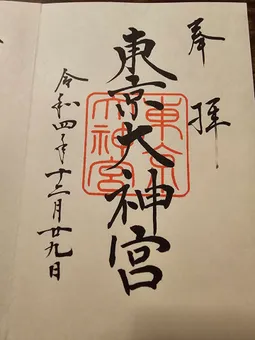 奉拝
東京大神宮
東京大神宮
令和四年十二月廿九日